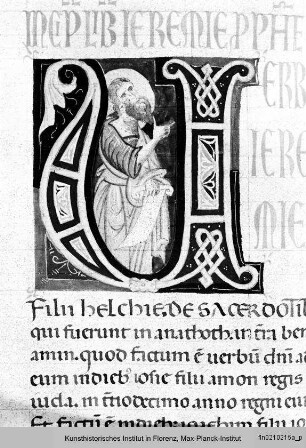 INCĪP LIB IEREMIE PPHĒ
U
ERB
IERE
MIE
Filii helchie. de sacerdotib
qui fuerunt in anathoth. in tr̄a ben
amin. quod factum ē uerbū dn̄i ad
eum in dieb; iosie filii amon regis
iuda. in tͤtiodecimo anno regni eius
Et factū ē in dieb;
Kunsthistorisches Institut in Florenz, Max-Planck-Institut